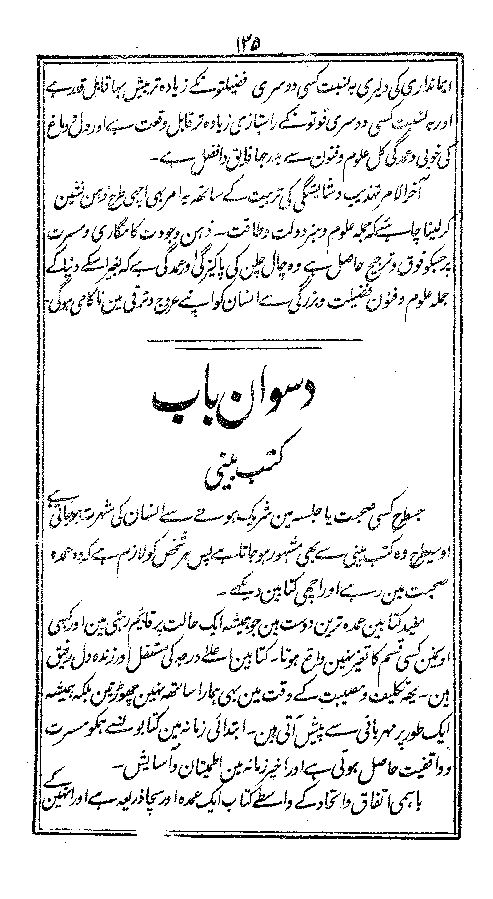 ۱۲۵
ایمانداری کی دلیری بہ نسبت کسی دوسری فضیلتونکے زیادہ تر بیش بہا قابل قدر ہے
اور بہ نسبت کسی دوسری قوتونکے راستبازی زیادہ تر قابل وقعت ہے اور دل و دماغ
کی خوبی و عمدگی کل علوم و فنون سے بدرجہا فایق و افضل ہے۔
آخر الامر تہذیب و شایستگی کی تربیت کے ساتھ یہ امر بہی اچھی طرح ذہن نشین
کر لینا چاہئے کہ جملہ علوم و ہنر دولت و طاقت۔ ذہن و جودت کامگاری و مسرت
پر جسکو فوق و ترجیح حاصل ہے وہ چال چلن کی پاکیزگی و عمدگی ہے کہ بغیر اسکے دنیا کے
جملہ علوم و فنون فضیلت و بزرگی سے انسان کو اپنے عروج و ترقی مین ناکامی ہوگی۔
دسوان باب
کتب بینی
جسطرح کسی صحبت یا جلسہ مین شریک ہونے سے انسان کی شہرت ہو جاتی ہے
اوسیطرح وہ کتب بینی سے بھی مشہور ہو جاتا ہے پس ہر شخص کو لازم ہے کہ وہ عمدہ
صحبت مین رہے اور اچھی کتابین دیکھے۔
مفید کتابین عمدہ ترین دوست ہین جو ہمیشہ ایک حالت پر قایم رہتی ہین اور کبھی
اونمین کسی قسم کا تغیر نہین واقع ہوتا۔ کتابین اعلے درجہ کی مستقل اور زندہ دل رفیق
ہین۔ یہ تکلیف و مصیبت کے وقت مین بہی ہمارا ساتھ نہین چھوڑتین بلکہ ہمیشہ
ایک طور پر مہربانی سے پیش آتی ہین۔ ابتدائی زمانہ مین کتابونسے ہمکو مسرت
و واقفیت حاصل ہوتی ہے اور اخیر زمانہ مین اطمینان و آسایش۔
باہمی اتفاق و اتحاد کے واسطے کتاب ایک عمدہ اور سچا ذریعہ ہے اور انہین کے